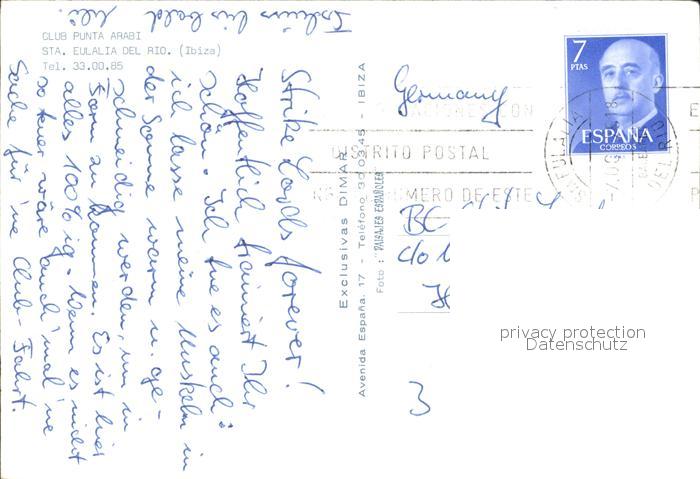 CLUB PUNTA ARABI
STA. EULALIA DEL RIO. (Ibiza)
Tel. 33.00.85
Strike Loyds forever!
Hoffentlich trainiert Ihr
schön. Ich tue es auch:
ich lasse meine Muskeln in
der Sonne warm u. ge-
schmeidig werden, um in
Form zu kommen. Es ist hier
alles 100%ig. Wenn es nicht
so teuer wäre auch mal 'ne
Sache für 'ne Club-Fahrt.
Tschüss bis bald
Exclusivas DIMAR
Avenida España, 17 - Teléfono 30 03 45 - IBIZA
Foto: "PAISAJES ESPAÑOLES"
7
PTAS
ESPAÑA
CORREOS
DISTRITO POSTAL
NUMERO DE ESTE
DEL RIO
Germany
BC
c/o
3
privacy protection
Datenschutz